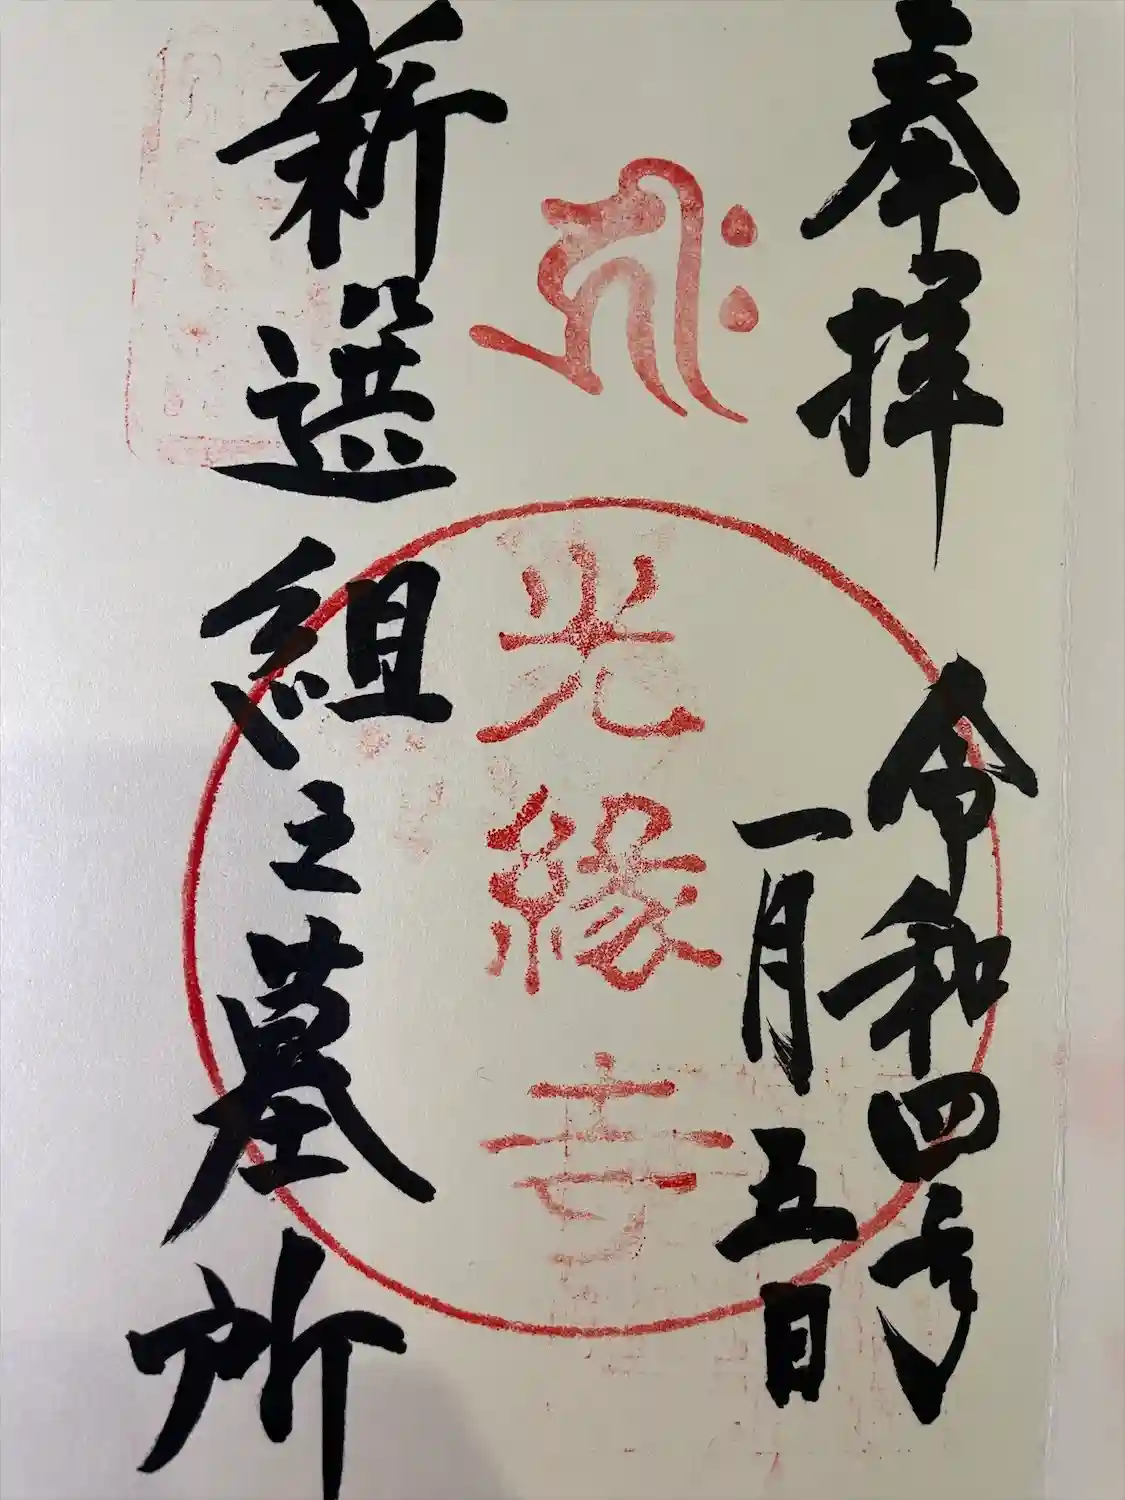 奉拝
令和四年
一月五日
光縁寺
新選組之墓所